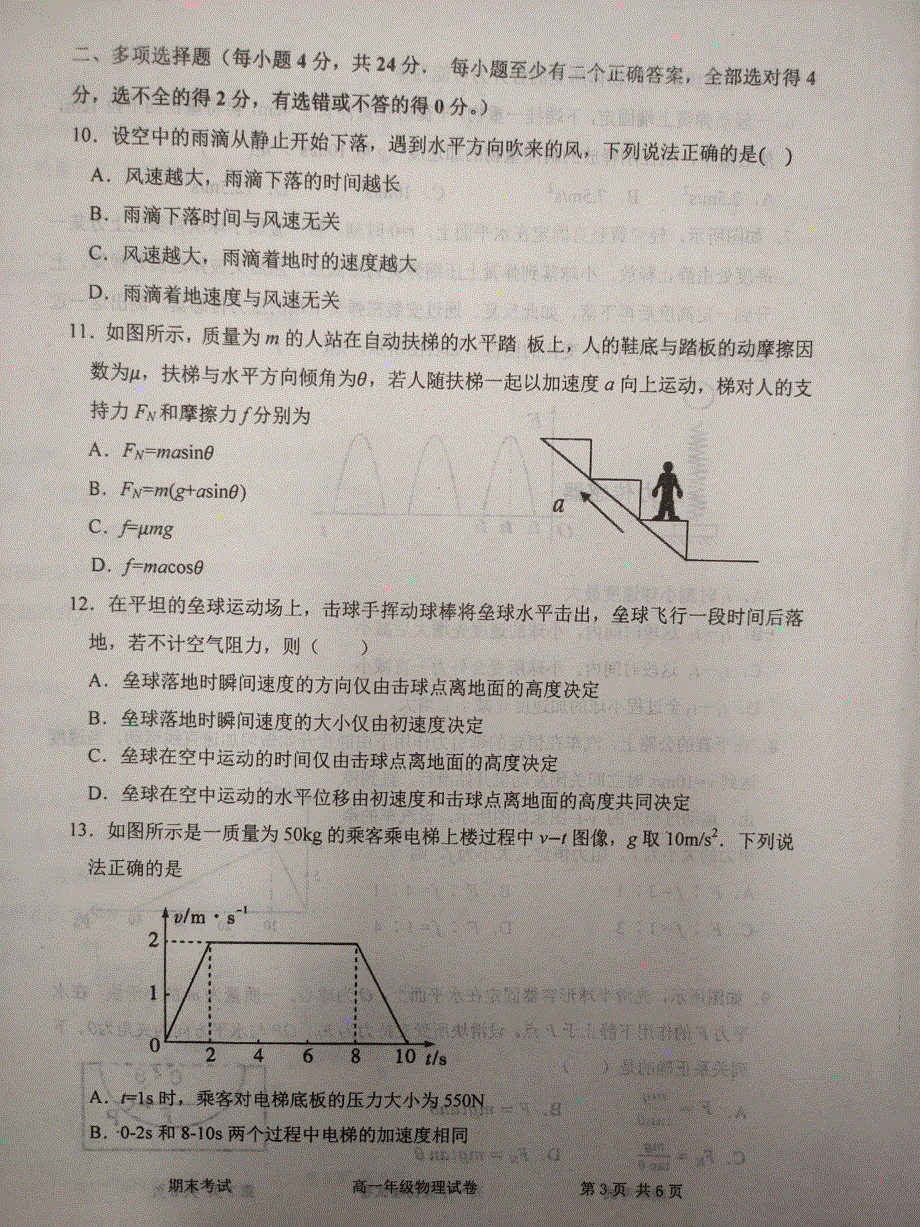 二、多项选择题（每小题 4 分，共 24 分． 每小题至少有二个正确答案，全部选对得 4
分，选不全的得 2 分，有选错或不答的得 0 分。）
10．设空中的雨滴从静止开始下落，遇到水平方向吹来的风，下列说法正确的是( )
A．风速越大，雨滴下落的时间越长
B．雨滴下落时间与风速无关
C．风速越大，雨滴着地时的速度越大
D．雨滴着地速度与风速无关
11．如图所示，质量为 m 的人站在自动扶梯的水平踏 板上，人的鞋底与踏板的动摩擦因
数为μ，扶梯与水平方向倾角为θ，若人随扶梯一起以加速度 a 向上运动，梯对人的支
持力 FN 和摩擦力 f 分别为
A．FN=masinθ
B．FN=m(g+asinθ)
a
C．f=μmg
D．f=macosθ
12．在平坦的垒球运动场上，击球手挥动球棒将垒球水平击出，垒球飞行一段时间后落
地，若不计空气阻力，则（ ）
A．垒球落地时瞬间速度的方向仅由击球点离地面的高度决定
B．垒球落地时瞬间速度的大小仅由初速度决定
C．垒球在空中运动的时间仅由击球点离地面的高度决定
D．垒球在空中运动的水平位移由初速度和击球点离地面的高度共同决定
13．如图所示是一质量为 50kg 的乘客乘电梯上楼过程中 v–t 图像，g 取 10m/s²．下列说
法正确的是
v/m·s⁻¹
2
1
0 2 4 6 8 10 t/s
A．t=1s 时，乘客对电梯底板的压力大小为 550N
B．0-2s 和 8-10s 两个过程中电梯的加速度相同
期末考试 高一年级物理试卷 第 3 页 共 6 页